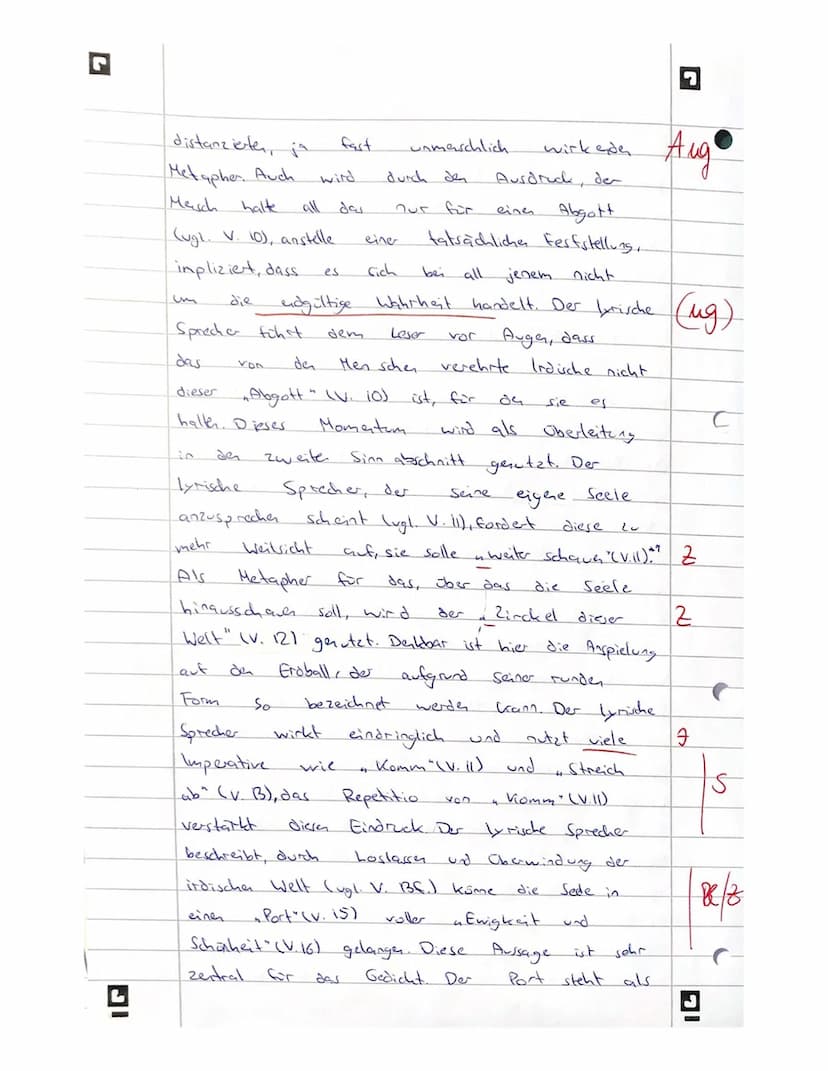 distanzierten, ja fast unmenschlich wirkenden Aug
Metapher. Auch wird durch den Ausdruck, der
Mensch halte all das nur für einen Abgott
(vgl. V. 10), anstelle einer tatsächlichen Feststellung,
impliziert, dass es sich bei all jenem nicht
um die endgültige Wahrheit handelt. Der lyrische (ug)
Sprecher führt dem Leser vor Augen, dass
das von den Menschen verehrte Irdische nicht
dieser „Abgott" (V. 10) ist, für den sie es
halten. Dieses Momentum wird als Überleitung
in den zweiten Sinnabschnitt genutzt. Der
lyrische Sprecher, der seine eigene Seele
anzusprechen scheint (vgl. V. 11), fordert diese zu
mehr Weitsicht auf, sie solle „weiter schauen" (V. 11). Z
Als Metapher für das, über das die Seele
hinausschauen soll, wird der „Zirckel dieser Z
Welt" (V. 12) genutzt. Denkbar ist hier die Anspielung
auf den Erdball, der aufgrund seiner runden
Form so bezeichnet werden kann. Der lyrische
Sprecher wirkt eindringlich und nutzt viele
Imperative wie „Komm" (V. 11) und „Streich S
ab" (V. 13), das Repetitio von „Komm" (V. 11)
verstärkt diesen Eindruck. Der lyrische Sprecher
beschreibt, durch Loslassen und Überwindung der
irdischen Welt (vgl. V. 13f.) käme die Seele in
einen „Port" (V. 15) voller „Ewigkeit und
Schönheit" (V. 16) gelangen. Diese Aussage ist sehr
zentral für das Gedicht. Der Port steht als